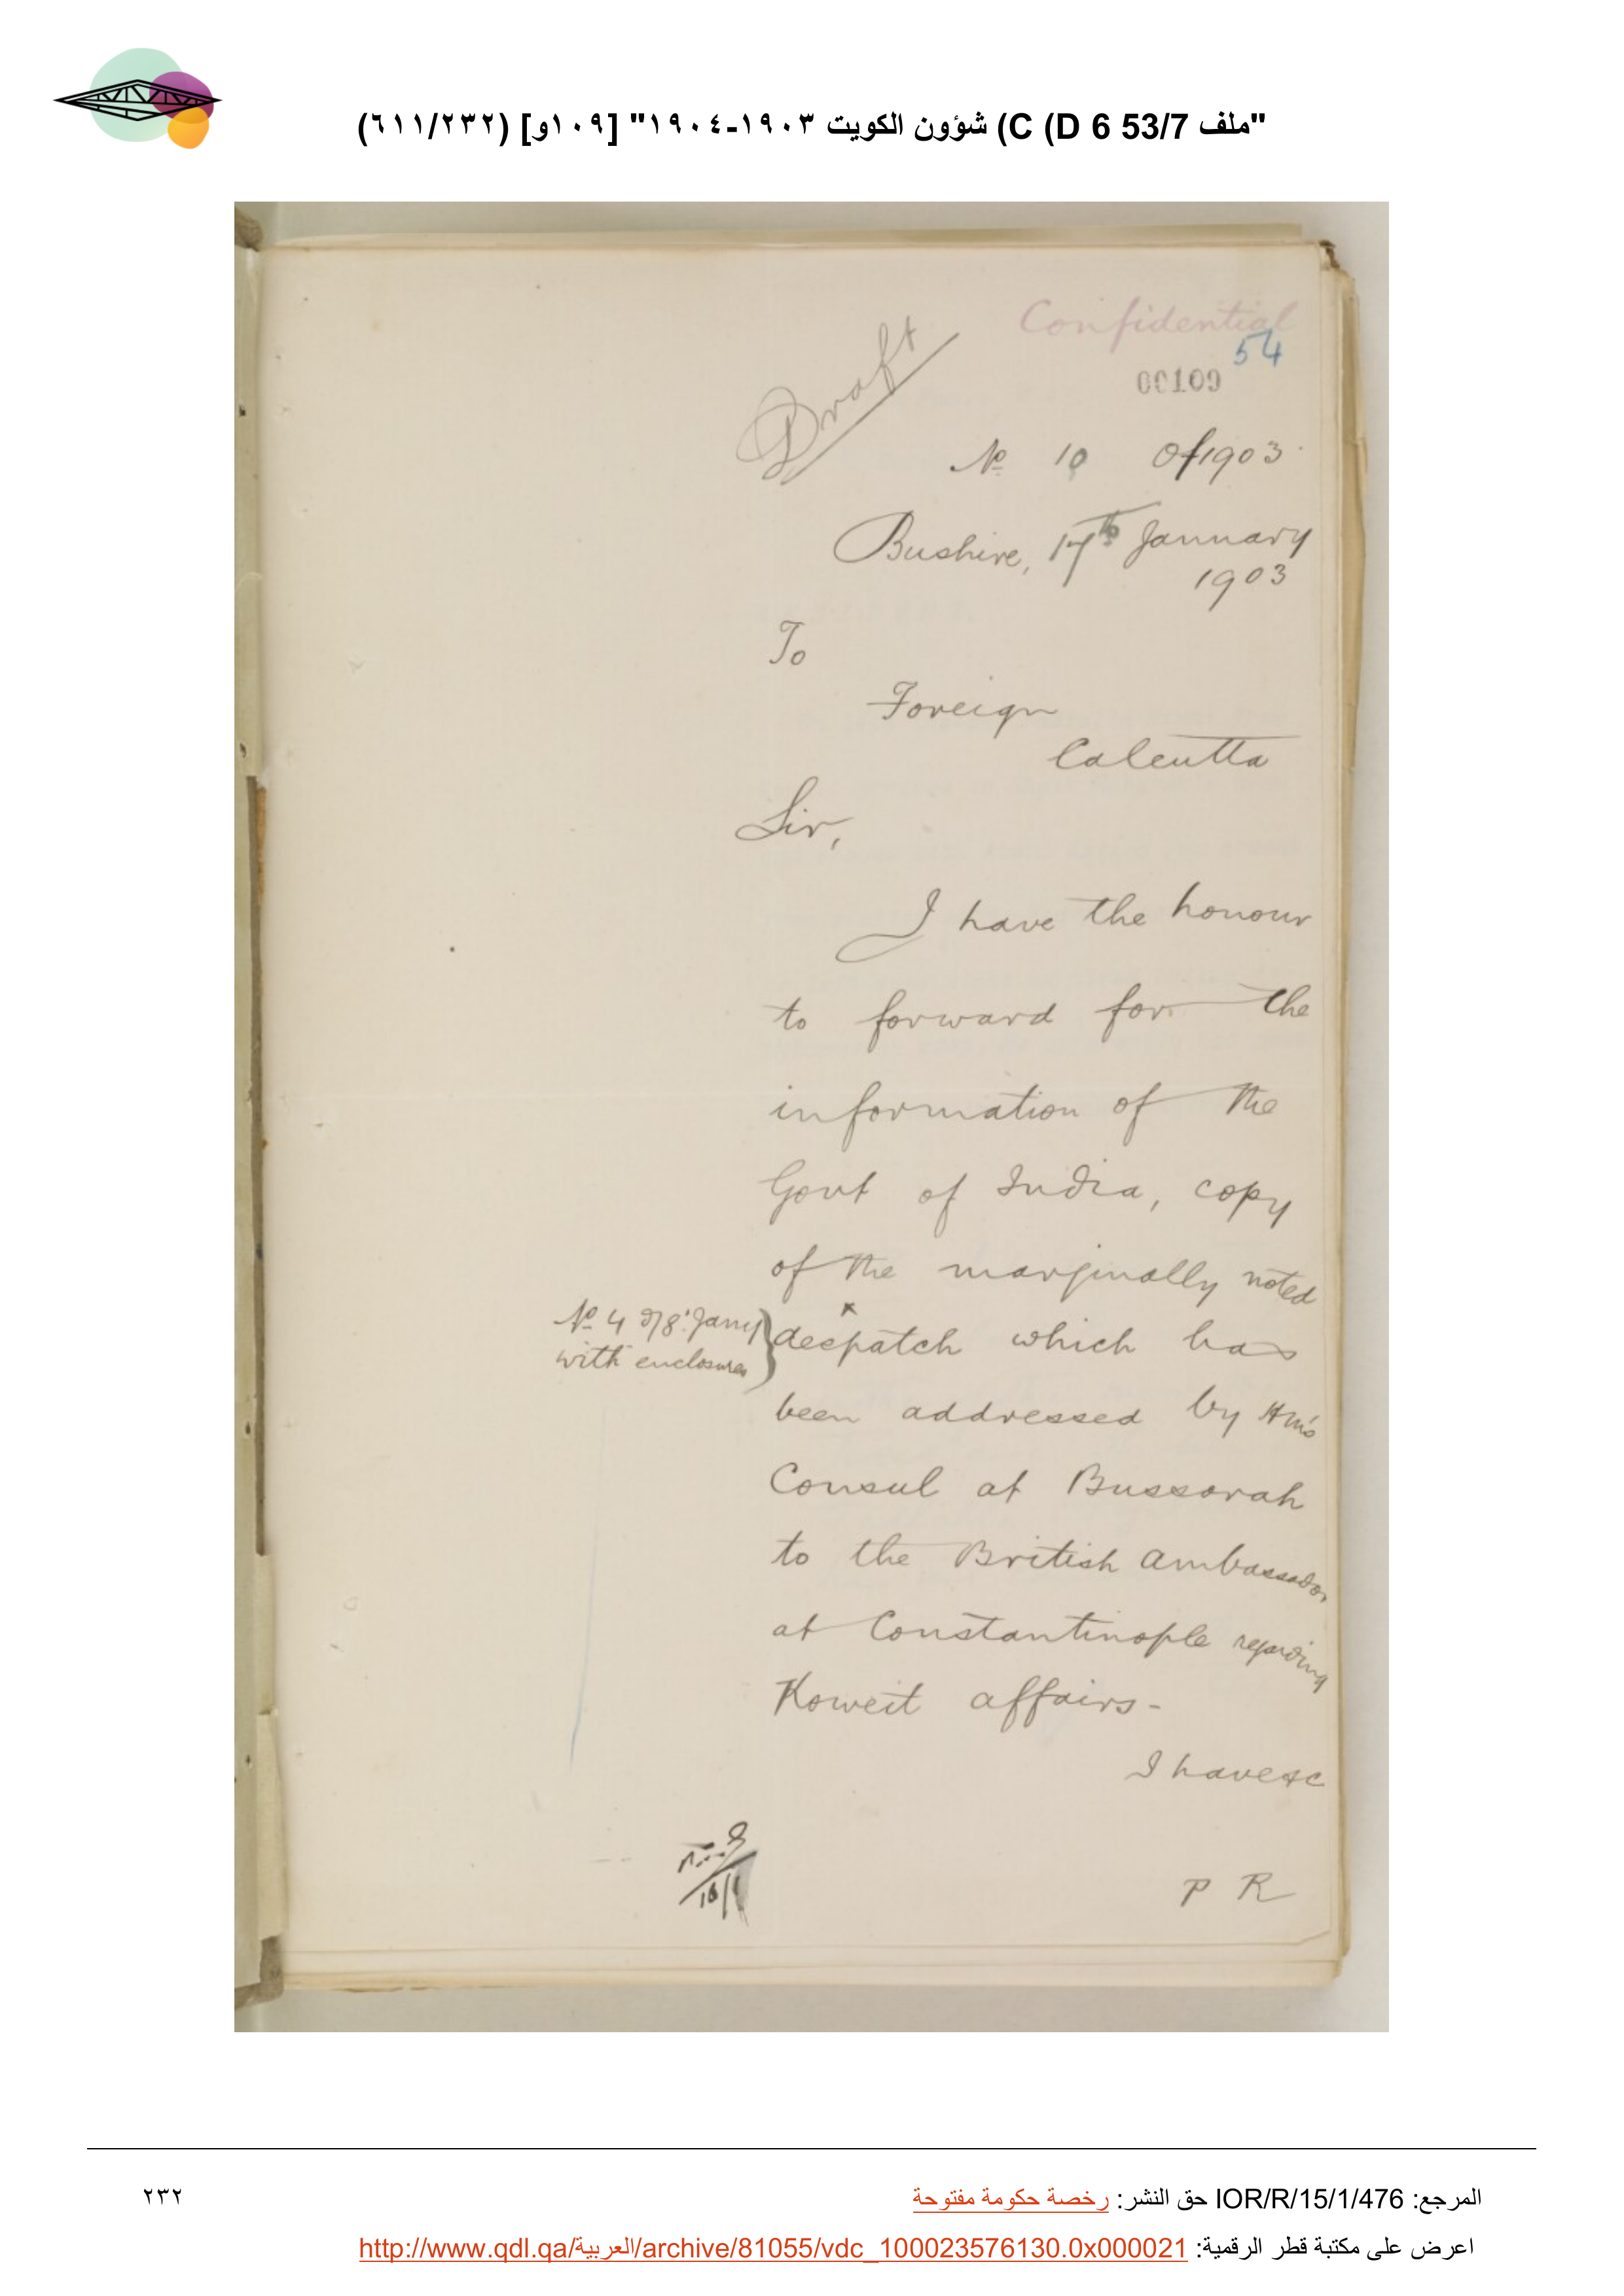 "ملف 53/7 C (D 6) شؤون الكويت ١٩٠٣-١٩٠٤" [١٠٩و] (٦١١/٢٣٢)
Confidential
54
00109
Draft
No 10 Of 1903
Bushire, 17th January
1903
To
Foreign
Calcutta
Sir,
I have the honour
to forward for the
information of the
Govt of India, copy
of the marginally noted
x
No 4 d/8 Jany
with enclosures
despatch which has
been addressed by HM's
Consul at Bussorah
to the British Ambassador
at Constantinople regarding
Koweit affairs-
I have &c
P R
المرجع: IOR/R/15/1/476 حق النشر: رخصة حكومة مفتوحة
٢٣٢
اعرض على مكتبة قطر الرقمية: http://www.qdl.qa/العربية/archive/81055/vdc_100023576130.0x000021